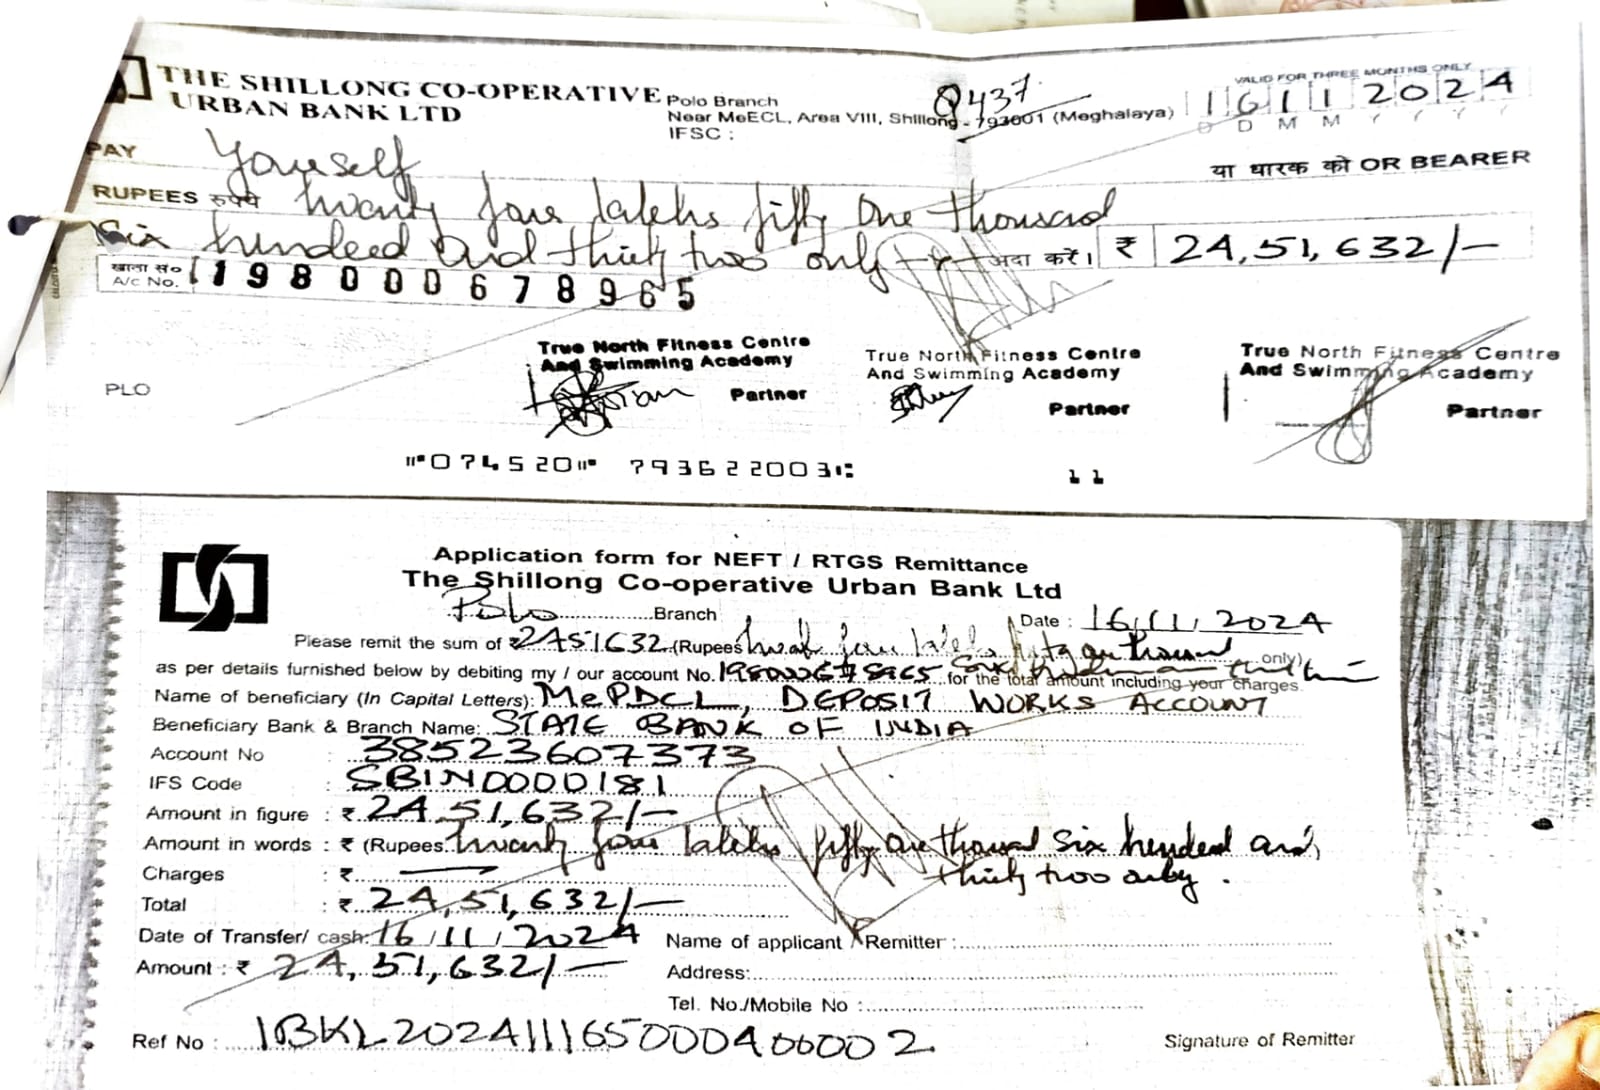 THE SHILLONG CO-OPERATIVE
URBAN BANK LTD
Polo Branch
Near MeECL, Area VIII, Shillong - 793001 (Meghalaya)
IFSC :
Q437
VALID FOR THREE MONTHS ONLY
16112024
D D M M Y Y Y Y
PAY Yourself
या धारक को OR BEARER
RUPEES रुपये twenty four lakhs fifty one thousand
Six hundred and thirty two only अदा करें। ₹ 24,51,632/-
खाता सं०
A/c No. 198000678965
True North Fitness Centre
And Swimming Academy
Partner
True North Fitness Centre
And Swimming Academy
Partner
True North Fitness Centre
And Swimming Academy
Partner
PLO
⑈074520⑈ 793622003⑆ 11
Application form for NEFT / RTGS Remittance
The Shillong Co-operative Urban Bank Ltd
Polo Branch Date : 16/11/2024
Please remit the sum of ₹ 2451632 (Rupees twenty four lakhs fifty one thousand only)
as per details furnished below by debiting my / our account No. for the total amount including your charges.
Name of beneficiary (In Capital Letters): MePDCL, DEPOSIT WORKS ACCOUNT
Beneficiary Bank & Branch Name: STATE BANK OF INDIA
Account No : 38523607373
IFS Code : SBIN0000181
Amount in figure : ₹ 24,51,632/-
Amount in words : ₹ (Rupees twenty four lakhs fifty one thousand six hundred and
thirty two only.
Charges : ₹ —
Total : ₹ 24,51,632/-
Date of Transfer/ cash: 16/11/2024 Name of applicant / Remitter :
Amount : ₹ 24,51,632/- Address:
Tel. No./Mobile No :
Ref No : IBKL2024111650004000002
Signature of Remitter